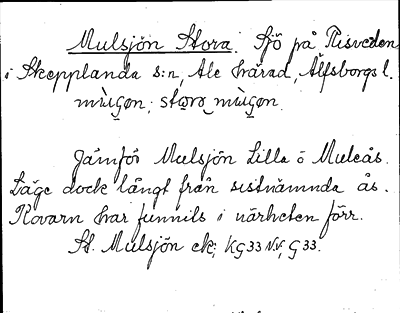 Mulsjön Stora. Sjö på Risveden
i Skepplanda s:n, Ale härad, Älfsborgs l.
mùlʃǫn, stora mùlʃǫn.
Jämför Mulsjön Lilla o Muleås.
Läge dock långt från sistnämnda ås.
Kvarn har funnits i närheten förr.
St. Mulsjön ek; KG33 NV, G 33.